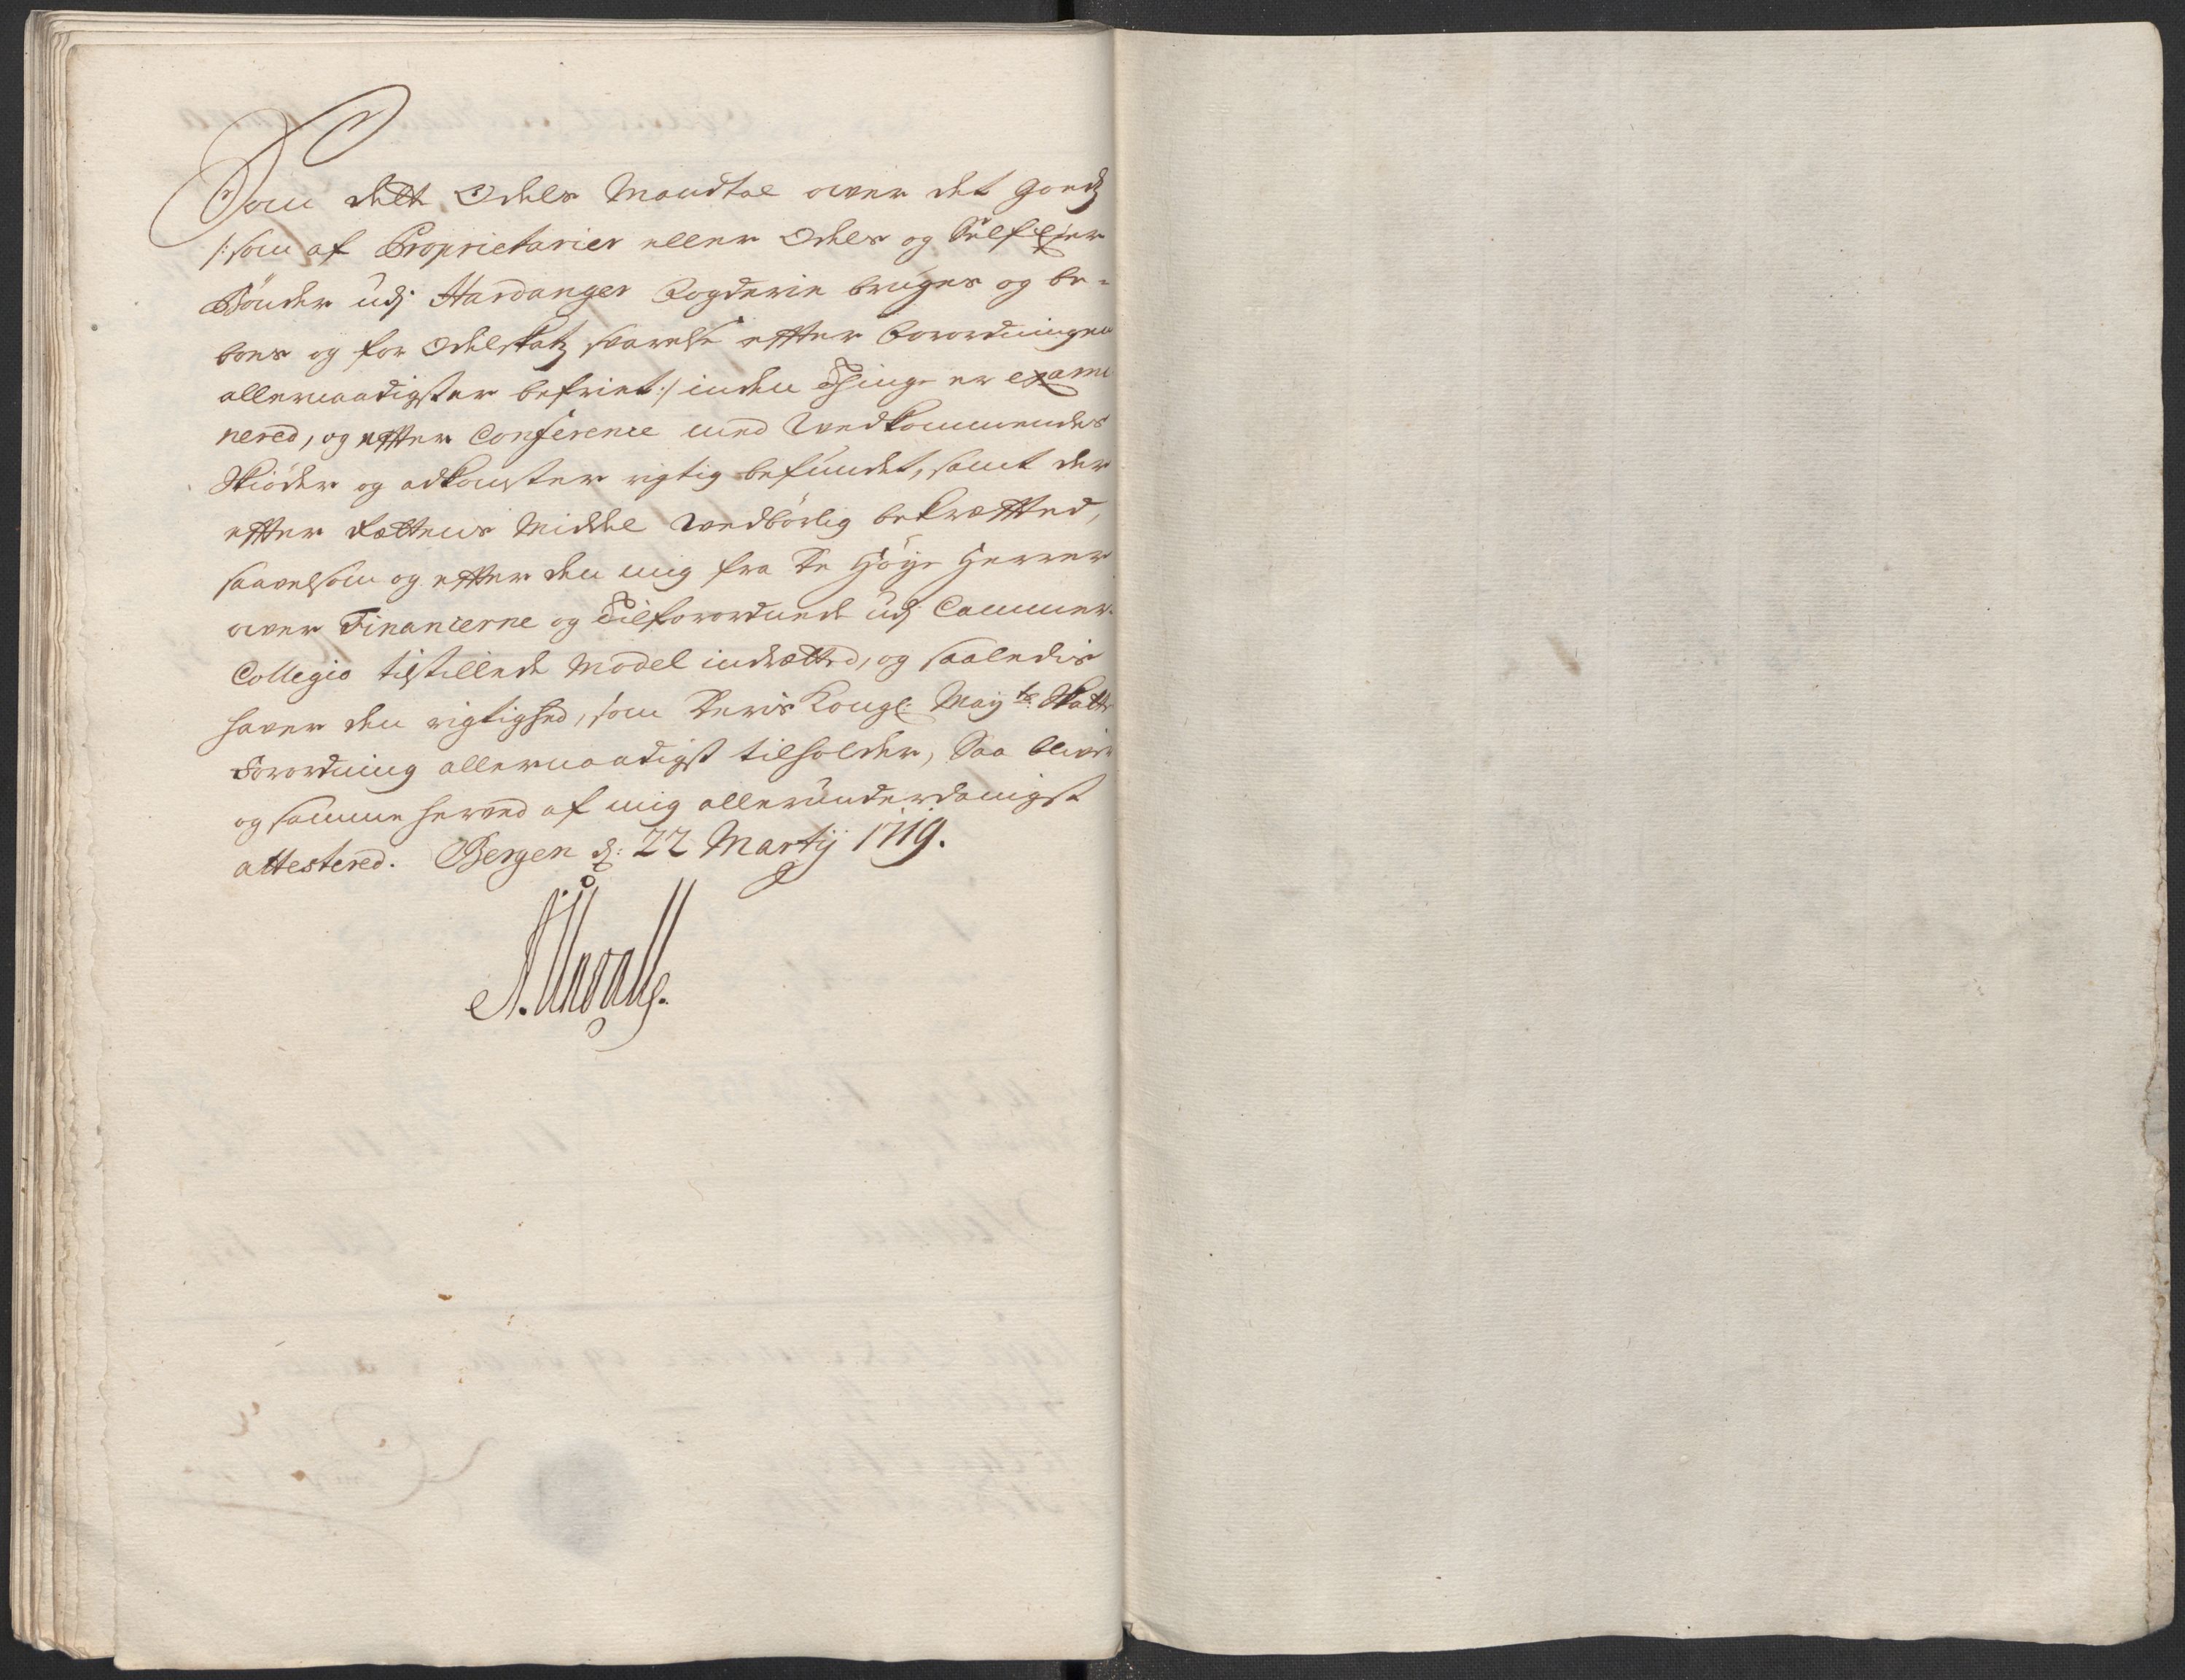 Som dette Odels Mandtal over det goedz
/: som af Proprietarier eller Odels og Sælf Ejer
Bønder udj Hardanger Fogderie bruges og be-
boes og for Odelskatz svarelse effter Forordningen
allernaadigster befriet :/ inden Tinge er exami
nered, og effter Conference med Vedkommendes
Skiøder og adkomster rigtig befundet, samt der
effter Rættens Middel vedbørlig bekræffted,
saavelsom og effter den mig fra De Høye Herrer
over Financerne og Tilforordnede udj Cammer-
Collegio tilstillede Model indrætted, og saaledis
haver den rigtighed, som Deris Kongl: May:ts Skatte
Forordning allernaadigst tilholder, Saa bliver
og samme herved af mig allerunderdanigst
attestered. Bergen d: 22 Martij 1719.